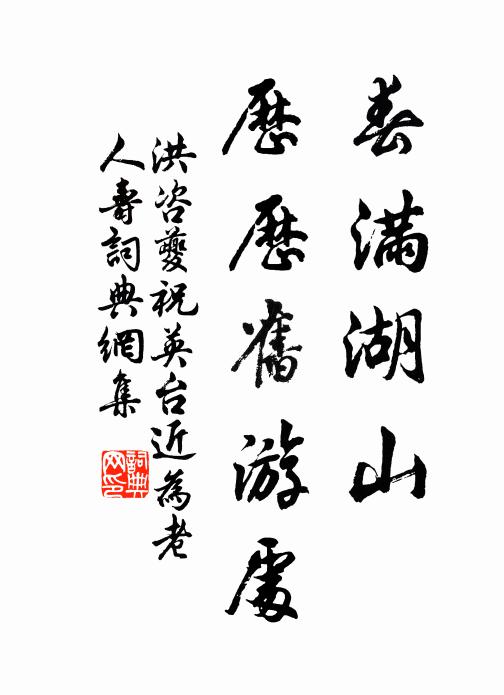 春滿湖山
歷歷舊游處
洪咨夔祝英台近為老
人壽詞典網集
詞典网印